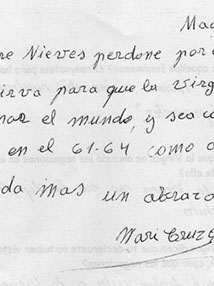 Ma
re Nieves perdone por
irva para que la virg
nar el mundo, y sea co
en el 61-64 como a
da mas un abrazo
Mari Cruz G